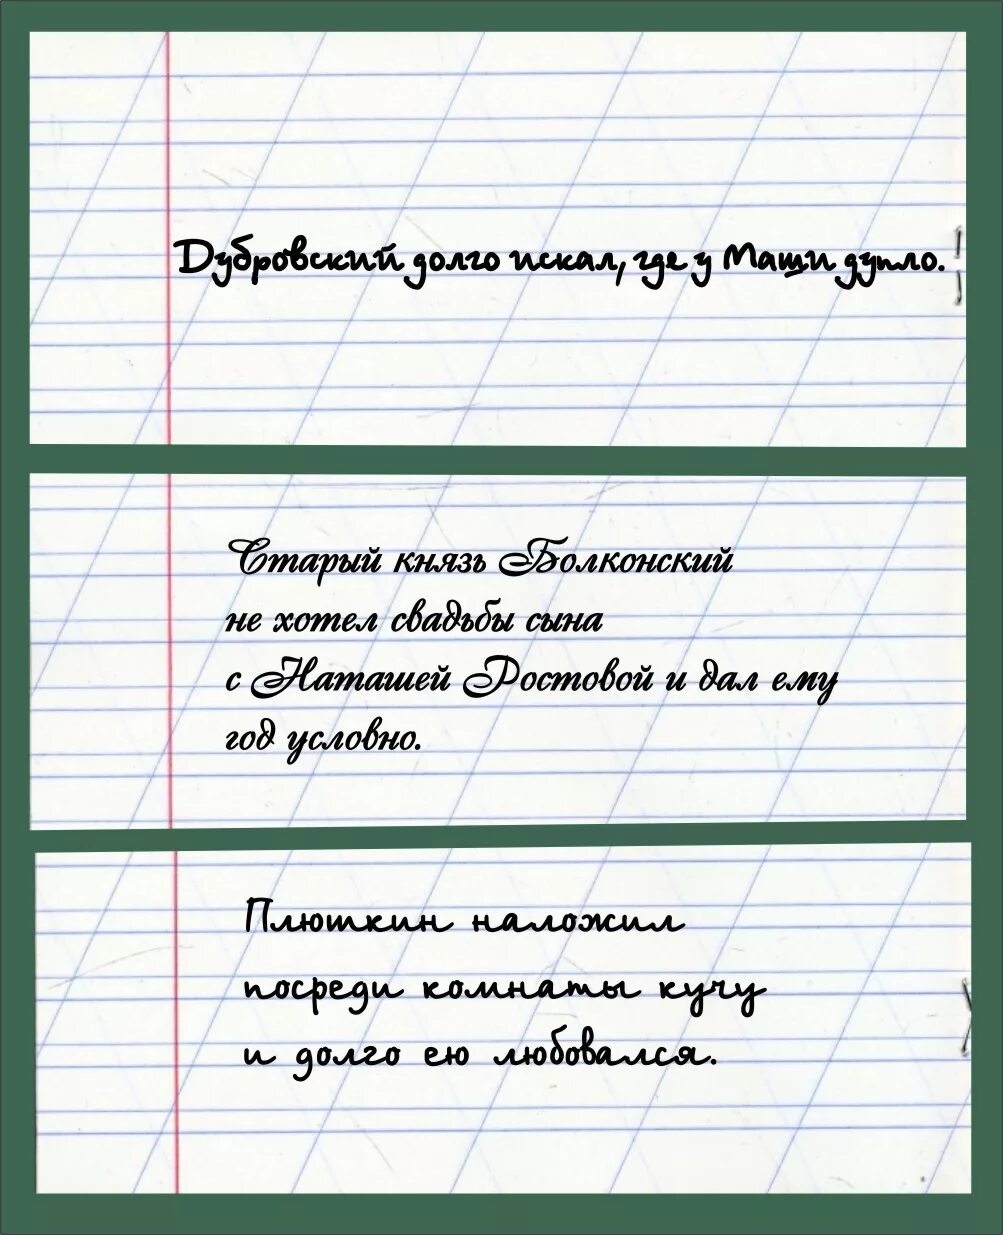 Дубровский долго искал, где у Маши дупло.
Старый князь Болконский
не хотел свадьбы сына
с Наташей Ростовой и дал ему
год условно.
Плюшкин наложил
посреди комнаты кучу
и долго ею любовался.